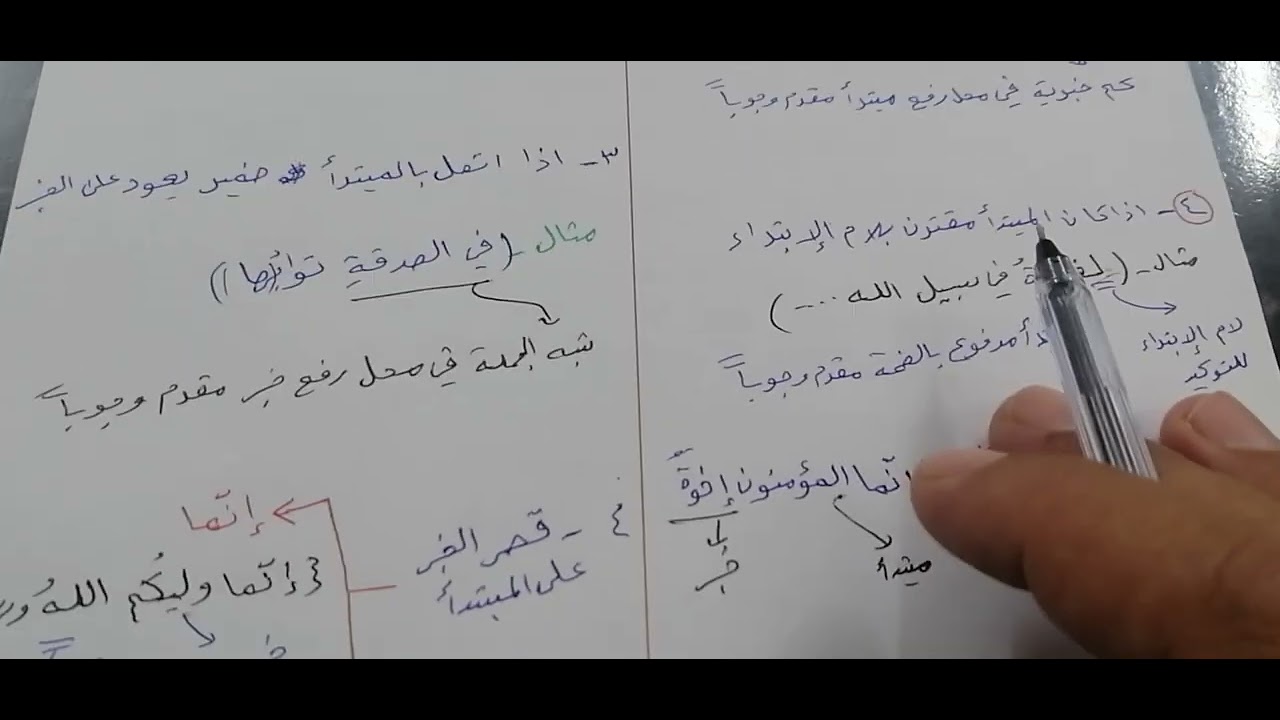 كم خبرية في محل رفع مبتدأ مقدم وجوباً
٤- اذا كان المبتدأ مقترن بلام الإبتداء
مثال - ( في سبيل الله .... )
لام الإبتداء
للتوكيد
مرفوع بالضمة مقدم وجوباً
انّما المؤمنون إخوةٌ
مبتدأ
خبر
٣- اذا اتصل بالمبتدأ ضمير يعود على الخبر
مثال - (في الصدقةِ ثوابُها)
شبه الجملة في محل رفع خبر مقدم وجوباً
٤- قصر الخبر
على المبتدأ
إنّما
{ إنّما وليُكم اللهُ